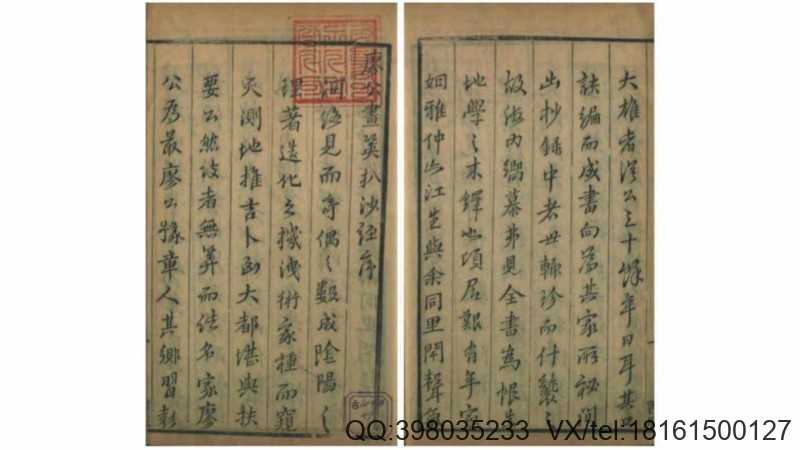 廖公畫筴扒沙經序
河絡見而奇偶之數成陰陽之
理著造化之機洩術家種而窺
天測地推吉卜凶大都堪輿扶
要公然談者無筭而佳名家廖
公為最廖公豫章人其鄉習
大雄者從公三十年日耳其
訣編而成書向為其家所秘間
出抄錄中者世輒珍而什襲之
故海內嚮慕弗見全書為恨
地學之木鐸也頃居艱有年家
姻雅仲山江生與余同里閈聲
QQ:398035233 VX/tel:18161500127